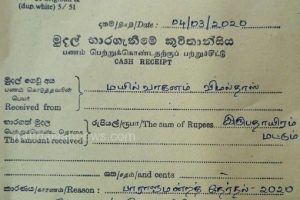 (dup.white) 5/51
දිනය/திகதி/Date : 04/03/2020
මුදල් භාරගැනීමේ කුවිතාන්සිය
பணம் பெற்றுக்கொண்டதற்குப் பற்றுச்சீட்டு
CASH RECEIPT
මුදල් ගෙවූ අය
பணம் கொடுத்தவரின் பெயர்
Received from
மயில் வாகனம் விமல்தாஸ்
භාරගත් මුදල
பெற்றுக்கொண்ட தொகை
The amount received
රුපියල්/ரூபா/The sum of Rupees
மட்டும்
ශත/சதம்/and cents
කාරණය/காரணம்/Reason : பாராளுமன்றத் தேர்தல் - 2020